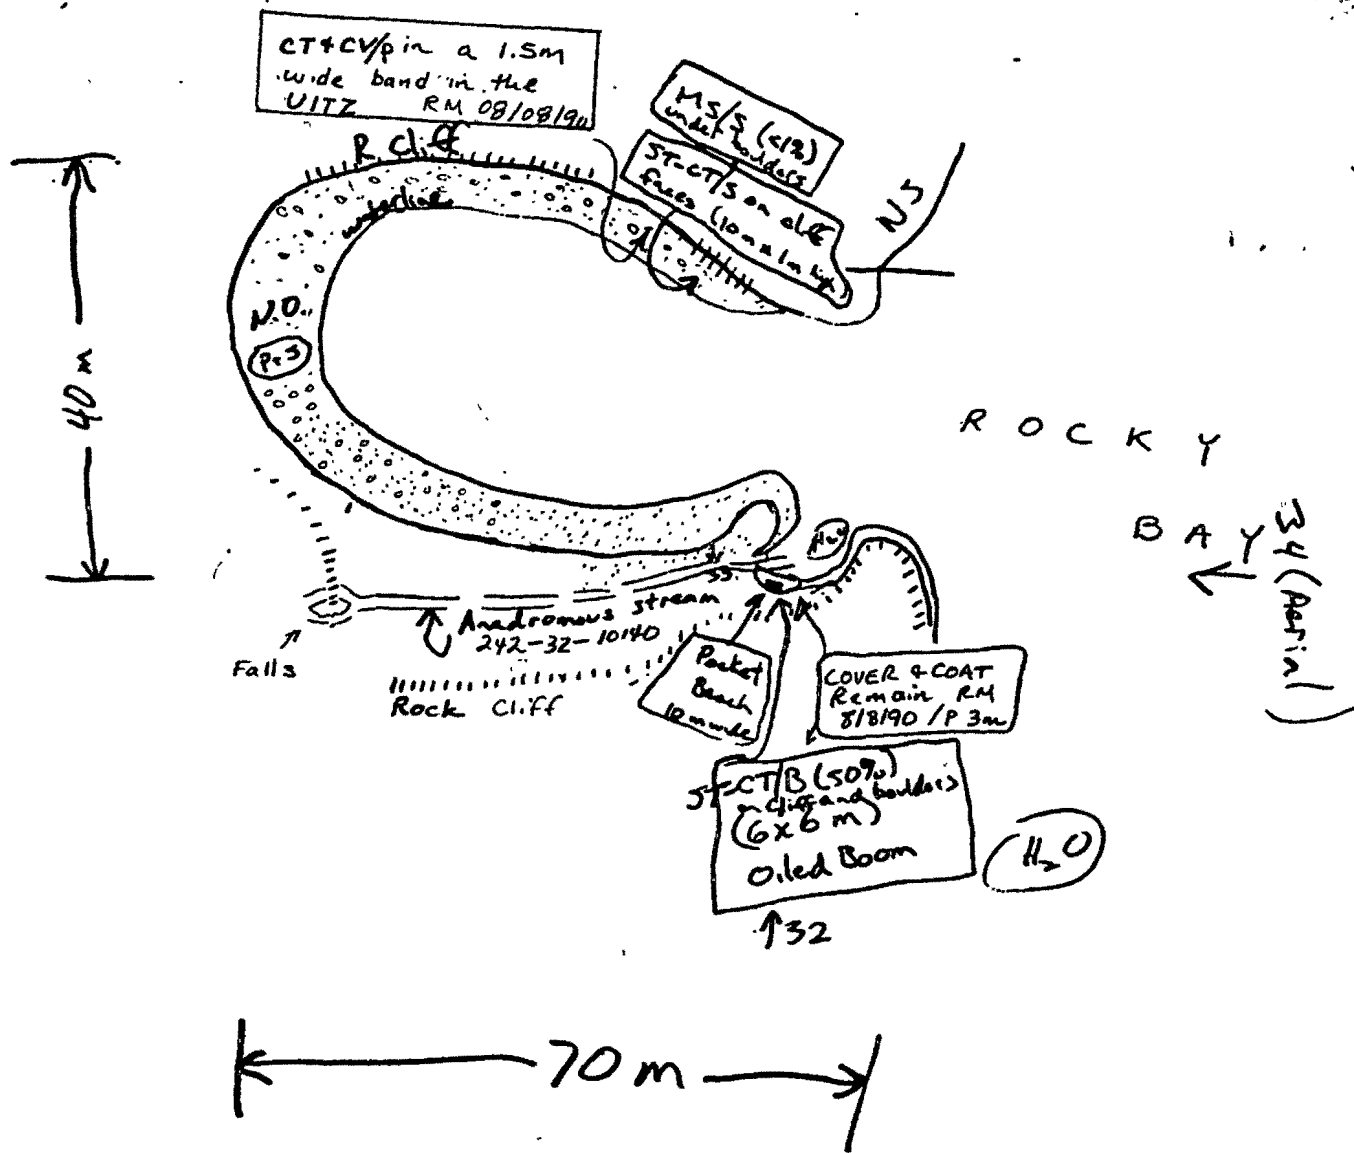 CT+CV/p in a 1.5m
wide band in the
UITZ RM 08/08/90
MS/S (<1%)
under boulders
ST=CT/S on cliff
faces (10m x 1m high)
R Cliff
waterline
NS
40 m
N.O.
ROCKY
BAY
34 (Aerial)
H2O
Anadromous stream
242-32-10140
Falls
Rock Cliff
Pocket
Beach
10m wide
COVER & COAT
Remain RM
8/8/90 /P 3m
ST=CT/B (50%)
on cliff and boulders
(6x6 m)
Oiled Boom
H2O
32
70 m